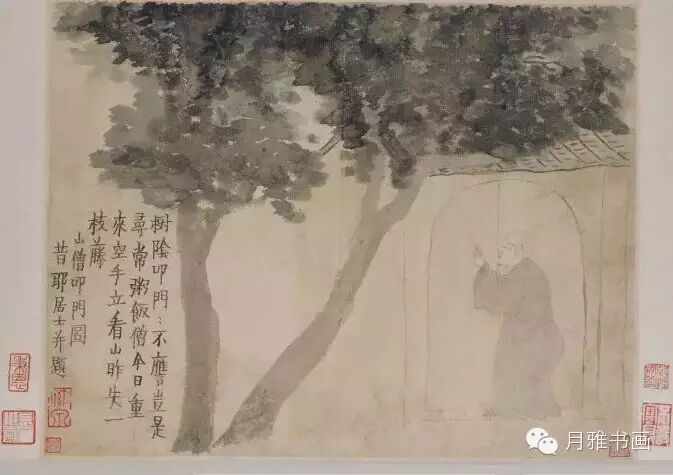 树陰叩門〻不譍豈是
尋常粥飯僧今日重
來空手立看山昨失一
枝藤
山僧叩門圖
昔耶居士并題
月雅书画